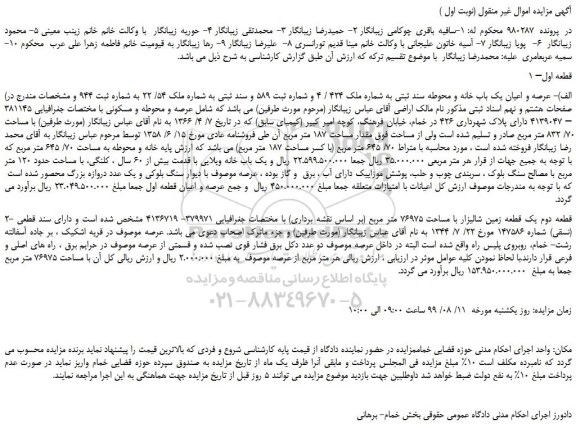 آگهی مزایده اموال غیر منقول (نوبت اول )
در پرونده ۹۸۰۲۸۷ محکوم له: ۱-ساقیه باقری چوکامی زیبانگار ۲- حمیدرضا زیبانگار ۳- محمدتقی زیبانگار ۴- حوریه زیبانگار با وکالت خانم خانم زینب معینی ۵- محمود
زیبانگار ۶- پویا زیبانگار ۷- آسیه خاتون علیجانی با وکالت خانم مینا قدیم تورانسری ۸- علیرضا زیبانگار ۹- رها زیبانگار به قیومیت خانم فاطمه زهرا علی عرب محکوم ۱۰-
سمیه عربعامری علیه: محمدرضا زیبانگار با موضوع تقسیم ترکه که ارزش آن طبق گزارش کارشناسی به شرح ذیل می باشد.
قطعه اول– ۱
الف)- عرصه و اعیان یک باب خانه و محوطه سند ثبتی به شماره ملک ۴۲۴ / ۴ و شماره ثبت ۵۸۹ و سند ثبتی به شماره ملک ۵۴/ ۲۲ به شماره ثبت ۹۴۴ و مشخصات مندرج در)
صفحات هشتم و نهم اسناد ثبتی مذکور نام مالک اراضی آقای عباس زیبانگار (مرحوم مورث طرفین) می باشد که شامل عرصه و محوطه و مسکونی با مختصات جغرافیایی ۳۸۱۱۴۵
۴۱۳۹۰۴۷ – دارای پلاک شهرداری ۴۲۶ در خمام، خیابان فرهنگ، کوچه امیر کبیر (کیمیای سابق) که در تاریخ ۷/ ۴/ ۱۳۶۶ به نام آقای عباس زیبانگار (مورث طرفین) با مساحت
۷۰/ ۸۳۲ متر مربع صادر و تسلیم شده است ولی از مساحت فوق مقدار مساحت ۱۸۷ متر مربع آن طی فروشنامه عادی مورخ ۱۵/ ۶/ ۱۳۵۸ توسط مرحوم عباس زیبانگار به آقای محمد
رضا زیبانگار فروخته شده است ، مورد محاسبه با متراژ ۷۰/ ۶۴۵ متر مربع (با کسر مساحت ۱۸۷ متر مربع) می باشد که ارزش پایه خانه و محوطه به مساحت ۷۰/ ۶۴۵ متر مربع که
با توجه به جمیع جهات از قرار هر متر مربعی ۳۵.۰۰۰.۰۰۰ ریال جمعا ۲۲.۵۹۹.۵۰۰.۰۰۰ ریال و یک باب خانه ویلایی با قدمت بیش از ۶۰ سال ، کلنگی، با مساحت حدود ۱۲۰ متر
مربع با مصالح سنگ بلوک ، سربندی چوب و حلب، پوشش موزاییک دارای آب ، برق و گاز بوده ، عرصه موصوف با دیوار سنگ بلوکی و یک عدد دروازه بزرگ محصور شده است
که با توجه به مندرجات موصوف ارزش کل اعیانات با امتیازات متعلقه جمعا مبلغ ۴۵۰.۰۰۰.۰۰۰ ریال و جمع عرصه و اعیان قطعه اول جمعا مبلغ ۲۳.۰۴۹.۵۰۰.۰۰۰ ریال برآورد می
گردد.
قطعه دوم یک قطعه زمین شالیزار با مساحت ۷۶۹۷۵ متر مربع (بر اساس نقشه برداری) با مختصات جغرافیایی ۳۷۹۹۷۱– ۴۱۳۶۷۱۹ مشخص شده است و دارای سند قطعی ۲–
(نسقی) شماره ۱۴۷۵۸۶ مورخ ۲۲/ ۷/ ۱۳۴۴ به نام آقای عباس زیبانگار (مورث طرفین) و جزء ماترک اصحاب دعوی می باشد. عرصه موصوف در قریه اشکیک ، بر جاده آسفالته
رشت- خمام، روبروی پلیس راه واقع شده است البته در داخل عرصه موصوف دو عدد دکل برق فشار قوی نصب شده و قسمتی از عرصه موصوف در حرایم برق ، راه های اصلی و
فرعی قرار دارندبا لحاظ نمودن کلیه عوامل موثر در ارزیابی ، ارزش ریالی هر متر مربع از عرصه موصوف به مبلغ ۲.۰۰۰.۰۰۰ ریال و ارزش ریالی کل آن با مساحت ۷۶۹۷۵ متر مربع
جمعا به مبلغ ۱۵۳.۹۵۰.۰۰۰.۰۰۰ ریال برآورد می گردد.
پایگاه اطلاع رسانی مناقصه و مزایده
۰۲۱-۸۸۳۴۹۶۷۰-۵
زمان مزایده: روز یکشنبه مورخه ۱۱/ ۰۸/ ۹۹ ساعت ۰۹:۰۰ الی ۱۰:۰۰
مکان: واحد اجرای احکام مدنی حوزه قضایی خماممزایده در حضور نماینده دادگاه از قیمت پایه کارشناسی شروع و فردی که بالاترین قیمت را پیشنهاد نماید برنده مزایده محسوب می
گردد که نامبرده مکلف است ۱۰% مبلغ مزایده فی المجلس پرداخت و مابقی آنرا ظرف یک ماه از تاریخ مزایده به صندوق سپرده حوزه قضایی خمام واریز نماید در صورت عدم
پرداخت مبلغ ۱۰% به نفع دولت ضبط خواهد شد داوطلبین جهت بازدید موضوع مزایده می توانند ۵ روز قبل از تاریخ مزایده جهت هماهنگی به این اجرا مراجعه نمایند.
دادورز اجرای احکام مدنی دادگاه عمومی حقوقی بخش خمام- برهانی